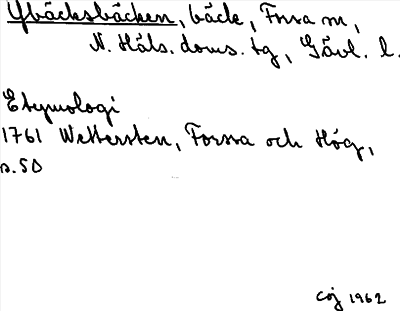 Ybäcksbäcken, bäck, Forsa sn,
N. Häls. doms. tg, Gävl. l.
Etymologi
1761 Wettersten, Forssa och Hög,
s. 50
CJ 1962